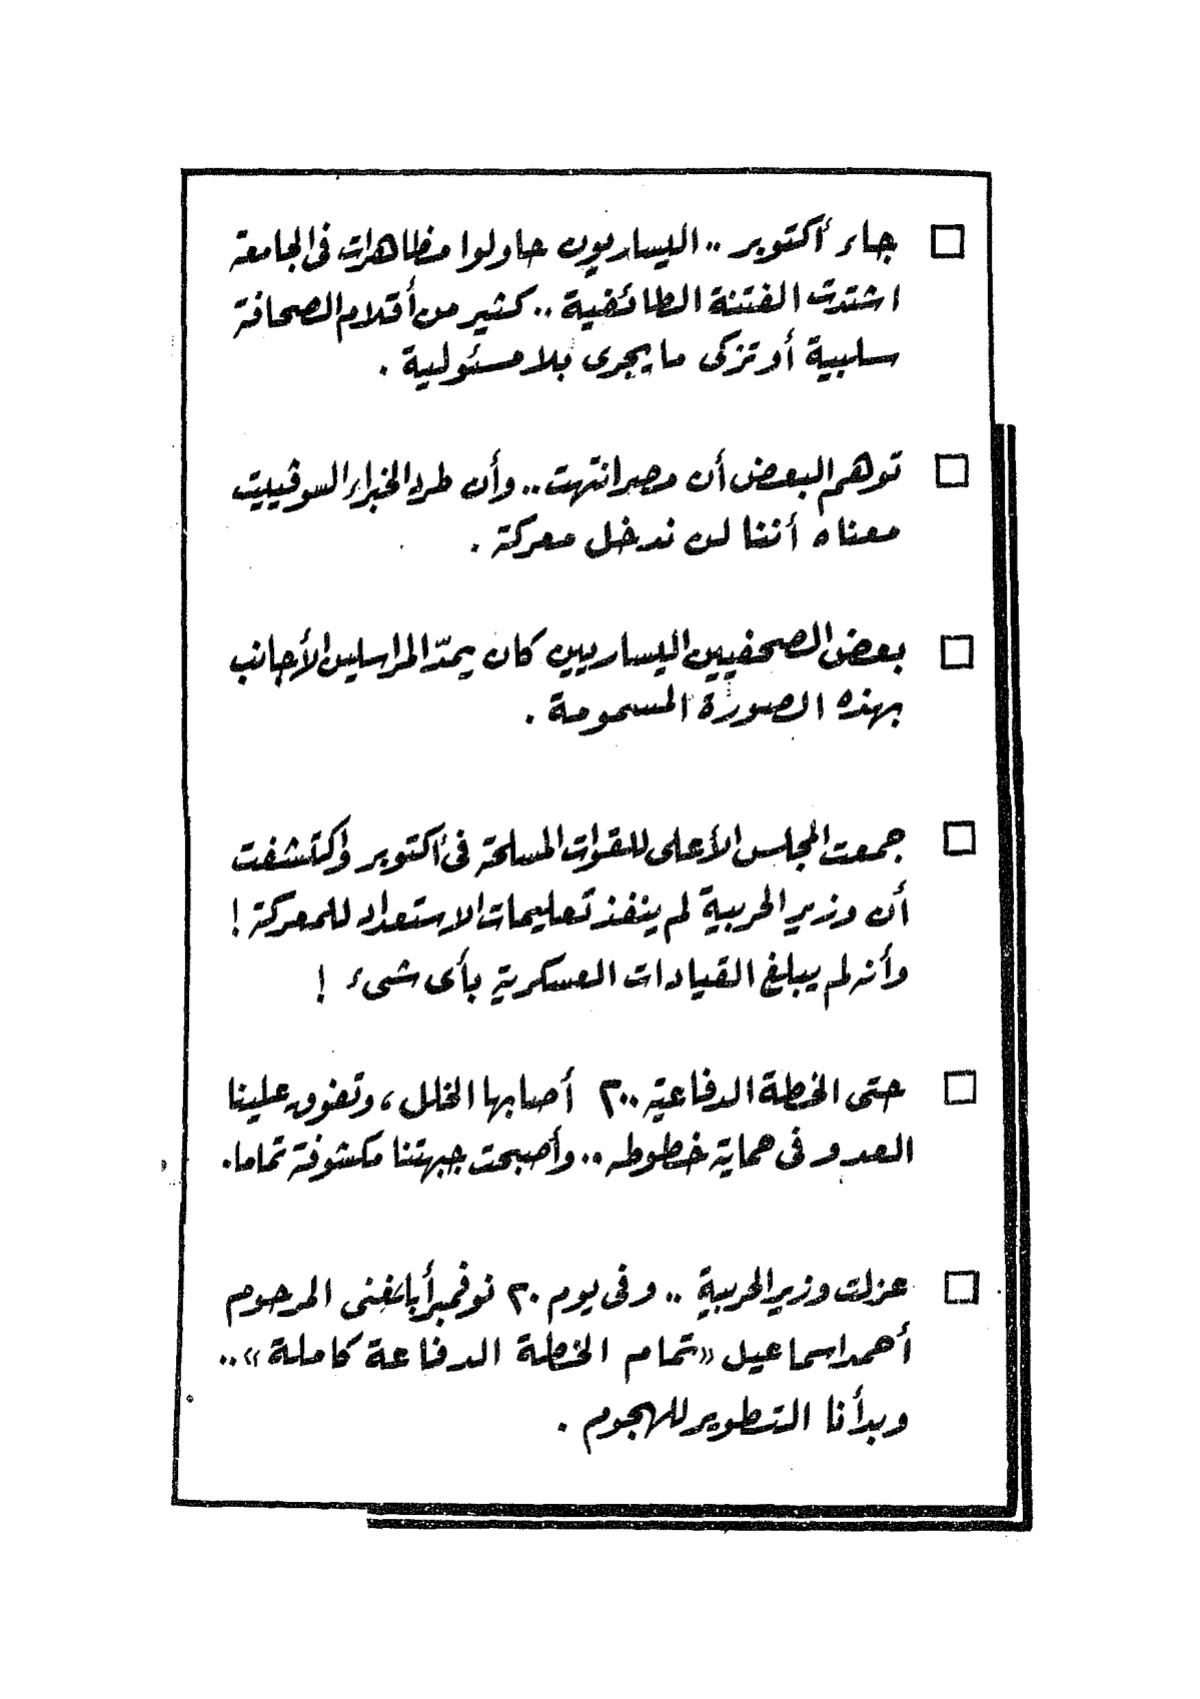 □ جاء أكتوبر .. اليساريون حاولوا مظاهرات فى الجامعة
اشتدت الفتنة الطائفية .. كثير من أقلام الصحافة
سلبية أو تزكى ما يجرى بلا مسئولية .
□ توهم البعض أن مصر انتهت .. وأن طرد الخبراء السوڤييت
معناه أننا لن ندخل معركة .
□ بعض الصحفيين اليساريين كان يمدّ المراسلين الأجانب
بهذه الصورة المسمومة .
□ جمعت المجلس الأعلى للقوات المسلحة فى أكتوبر واكتشفت
أن وزير الحربية لم ينفذ تعليمات الاستعداد للمعركة !
وأنه لم يبلغ القيادات العسكرية بأى شىء !
□ حتى الخطة الدفاعية ٢٠٠ أصابها الخلل ، وتفوق علينا
العدو فى حماية خطوطه .. وأصبحت جبهتنا مكشوفة تماما .
□ عزلت وزير الحربية .. وفى يوم ٢٠ نوفمبر أبلغنى المرحوم
أحمد اسماعيل «تمام الخطة الدفاعة كاملة» ..
وبدأنا التطوير للهجوم .